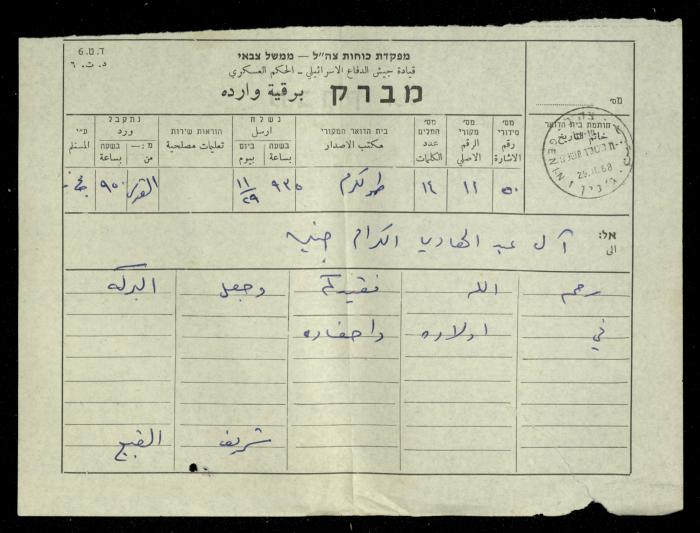 ד.ט.6
د.ت.٦
מפקדת כוחות צה"ל — ממשל צבאי
قيادة جيش الدفاع الاسرائيلي - الحكم العسكري
מברק برقية وارده
מס׳
חותמת בית הדואר
خاتم التاريخ
JENIN
29.11.68
מס׳ סידורי رقم الاشارة
מס׳ מקורי الرقم الاصلي
מס׳ המלים عدد الكلمات
בית הדואר המקורי مكتب الاصدار
נשלח ارسل
בשעה بساعة
ביום بيوم
הוראות שירות تعليمات مصلحية
נתקבל ورد
מ:— من
בשעה بساعة
ע״י المستلم
٥٠ ١١ ١٤ طولكرم ٩٣٥ ١١/٢٩ القدس ٩٥٠
אל: الى
آل عبد الهادي الكرام جنين
رحم الله فقيدكم وجعل البركه
في اولاده واحفاده
شريف القبج